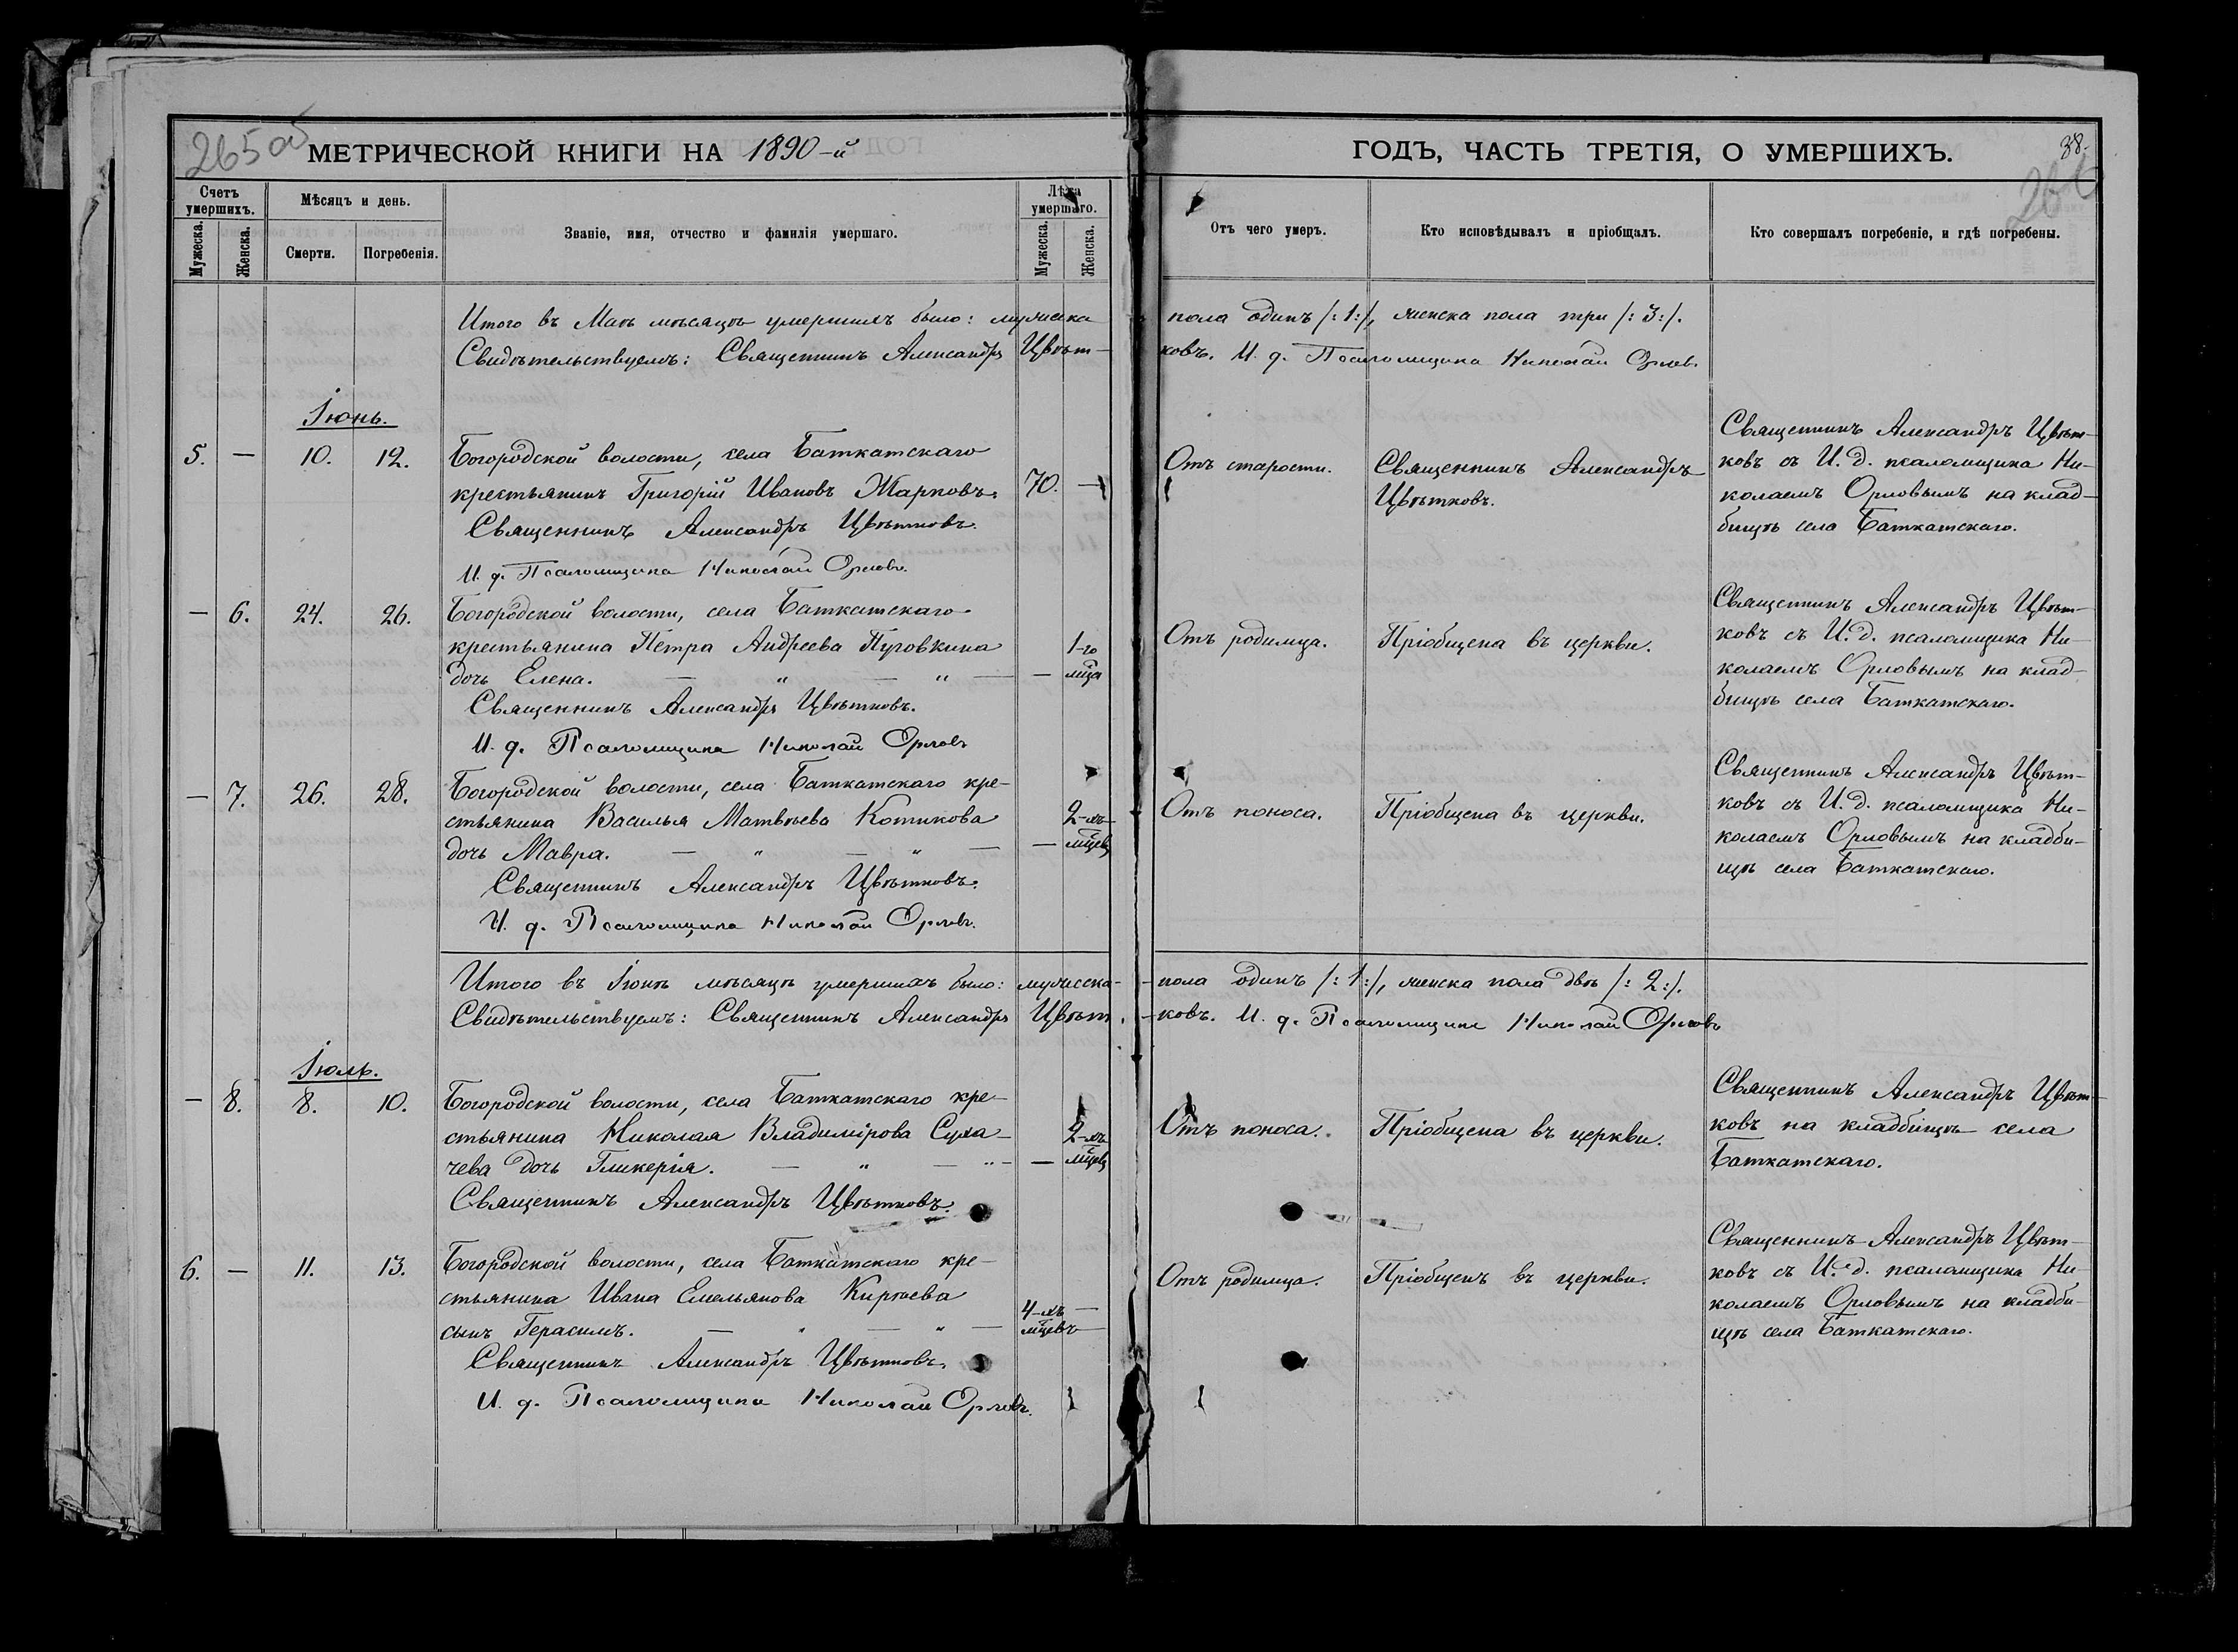 265 об
МЕТРИЧЕСКОЙ КНИГИ НА 1890-й
ГОДЪ, ЧАСТЬ ТРЕТІЯ, О УМЕРШИХЪ.
38.
Счетъ умершихъ.
Мужеска.
Женска.
Мѣсяцъ и день.
Смерти.
Погребенія.
Званіе, имя, отчество и фамилія умершаго.
Лѣта умершаго.
Мужеска.
Женска.
Отъ чего умеръ.
Кто исповѣдывалъ и пріобщалъ.
Кто совершалъ погребеніе, и гдѣ погребены.
Итого въ Маѣ мѣсяцѣ умершихъ было: мужеска пола одинъ /:1:/, женска пола три /:3:/.
Свидѣтельствуемъ: Священникъ Александръ Цвѣтковъ. И. д. Псаломщика Николай Орловъ.
Іюнь.
5. — 10. 12.
Богородской волости, села Баткатскаго
крестьянинъ Григорій Ивановъ Жарковъ.
Священникъ Александръ Цвѣтковъ.
И. д. Псаломщика Николай Орловъ.
70. —
Отъ старости.
Священникъ Александръ
Цвѣтковъ.
Священникъ Александръ Цвѣт-
ковъ съ И. д. псаломщика Ни-
колаемъ Орловымъ на клад-
бищѣ села Баткатскаго.
— 6. 24. 26.
Богородской волости, села Баткатскаго
крестьянина Петра Андреева Пуговкина
дочь Елена. — " — " —
Священникъ Александръ Цвѣтковъ.
И. д. Псаломщика Николай Орловъ
— 1-го
мца
Отъ родимца.
Пріобщена въ церкви.
Священникъ Александръ Цвѣт-
ковъ съ И. д. псаломщика Ни-
колаемъ Орловымъ на клад-
бищѣ села Баткатскаго.
— 7. 26. 28.
Богородской волости, села Баткатскаго кре-
стьянина Василья Матвѣева Котикова
дочь Мавра. — " — " —
Священникъ Александръ Цвѣтковъ.
И. д. Псаломщика Николай Орловъ.
— 2-хъ
мцевъ
Отъ поноса.
Пріобщена въ церкви.
Священникъ Александръ Цвѣт-
ковъ съ И. д. псаломщика Ни-
колаемъ Орловымъ на кладби-
щѣ села Баткатскаго.
Итого въ Іюнѣ мѣсяцѣ умершихъ было: мужеска- -пола одинъ /:1:/, женска пола двѣ /:2:/.
Свидѣтельствуемъ: Священникъ Александръ Цвѣт- -ковъ. И. д. Псаломщика Николай Орловъ
Іюль.
— 8. 8. 10.
Богородской волости, села Баткатскаго кре-
стьянина Николая Владимірова Суха-
чева дочь Гликерія. — " — " —
Священникъ Александръ Цвѣтковъ.
— 2-хъ
мцевъ
Отъ поноса.
Пріобщена въ церкви.
Священникъ Александръ Цвѣт-
ковъ на кладбищѣ села
Баткатскаго.
6. — 11. 13.
Богородской волости, села Баткатскаго кре-
стьянина Ивана Емельянова Киргаева
сынъ Герасимъ. — " — " —
Священникъ Александръ Цвѣтковъ.
И. д. Псаломщика Николай Орловъ.
4-хъ —
мцевъ —
Отъ родимца.
Пріобщенъ въ церкви.
Священникъ Александръ Цвѣт-
ковъ съ И. д. псаломщика Ни-
колаемъ Орловымъ на кладби-
щѣ села Баткатскаго.